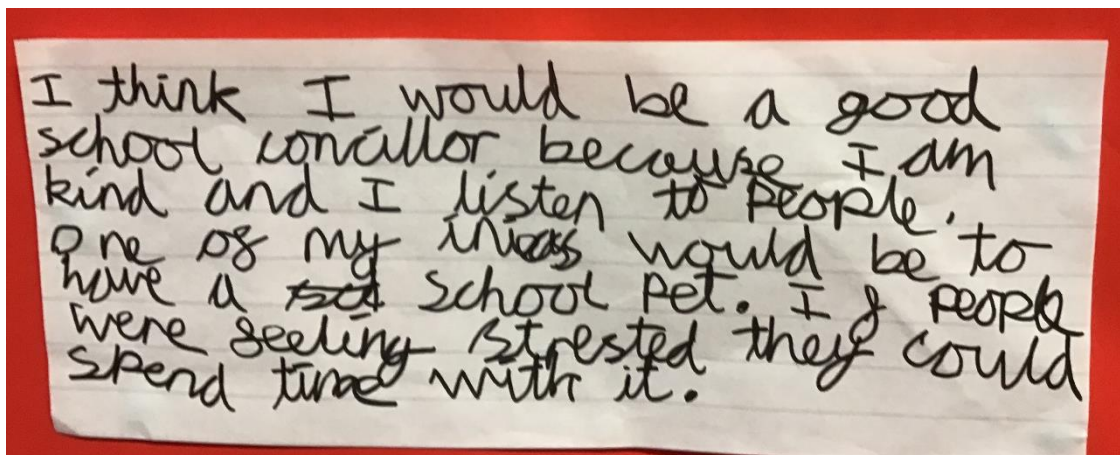 I think I would be a good
school concillor because I am
kind and I listen to people.
One of my would be to
have a school pet. If people
were feeling strested they could
spend time with it.